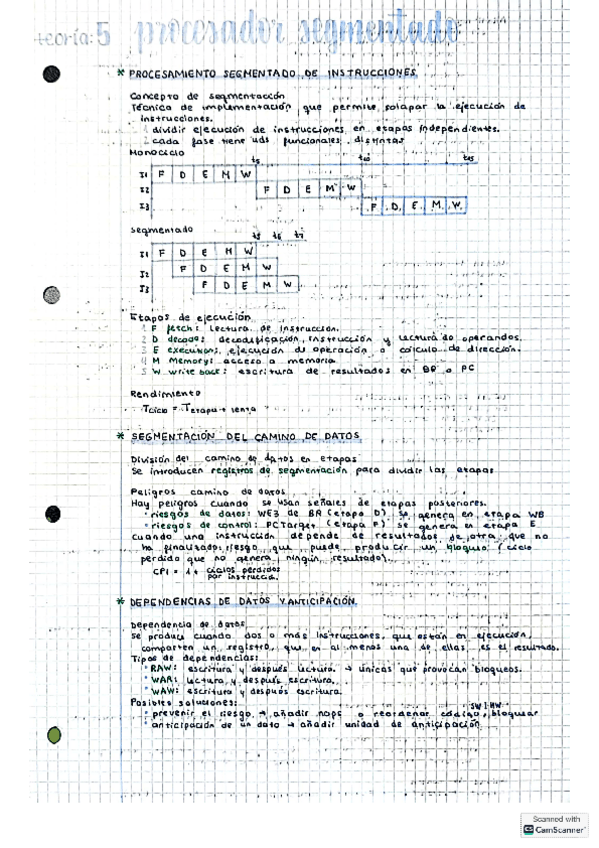 teoría: 5 procesador segmentado
* PROCESAMIENTO SEGMENTADO DE INSTRUCCIONES
Concepto de segmentación
Técnica de implementación que permite solapar la ejecución de
instrucciones.
1 dividir ejecución de instrucciones en etapas independientes.
2 cada fase tiene uds funcionales distintas
Monociclo
t5 t10 t15
I1 F D E M W
I2 F D E M W
I3 F D E M W
Segmentado
t5 t6 t7
I1 F D E M W
I2 F D E M W
I3 F D E M W
Etapas de ejecución
1 F fetch: lectura de instrucción.
2 D decode: decodificación instrucción y lectura de operandos.
3 E execution: ejecución de operación o cálculo de dirección.
4 M Memory: acceso a memoria
5 W write back: escritura de resultados en BR o PC
Rendimiento
Tciclo = Tetapa + lenta
* SEGMENTACIÓN DEL CAMINO DE DATOS
División del camino de datos en etapas
Se introducen registros de segmentación para dividir las etapas
Peligros camino de datos
Hay peligros cuando se usan señales de etapas posteriores.
• riesgos de datos: WE3 de BR (etapa D) se genera en etapa WB
• riesgos de control: PCTarget (etapa F) se genera en etapa E
Cuando una instrucción depende de resultados de otra que no
ha finalizado: riesgo que puede producir un bloqueo (ciclo
perdido que no genera ningún resultado).
CPI = 1 + ciclos perdidos
por instrucción.
* DEPENDENCIAS DE DATOS Y ANTICIPACIÓN
Dependencia de datos
Se produce cuando dos o más instrucciones, que están en ejecución,
comparten un registro, que en al menos una de ellas, es el resultado.
Tipos de dependencias:
• RAW: escritura y después lectura. → únicas que provocan bloqueos.
• WAR: lectura y después escritura.
• WAW: escritura y después escritura.
Posibles soluciones:
SW | HW
• prevenir el riesgo → añadir nops o reordenar código, bloquear
• anticipación de un dato → añadir unidad de anticipación
Scanned with
CamScanner